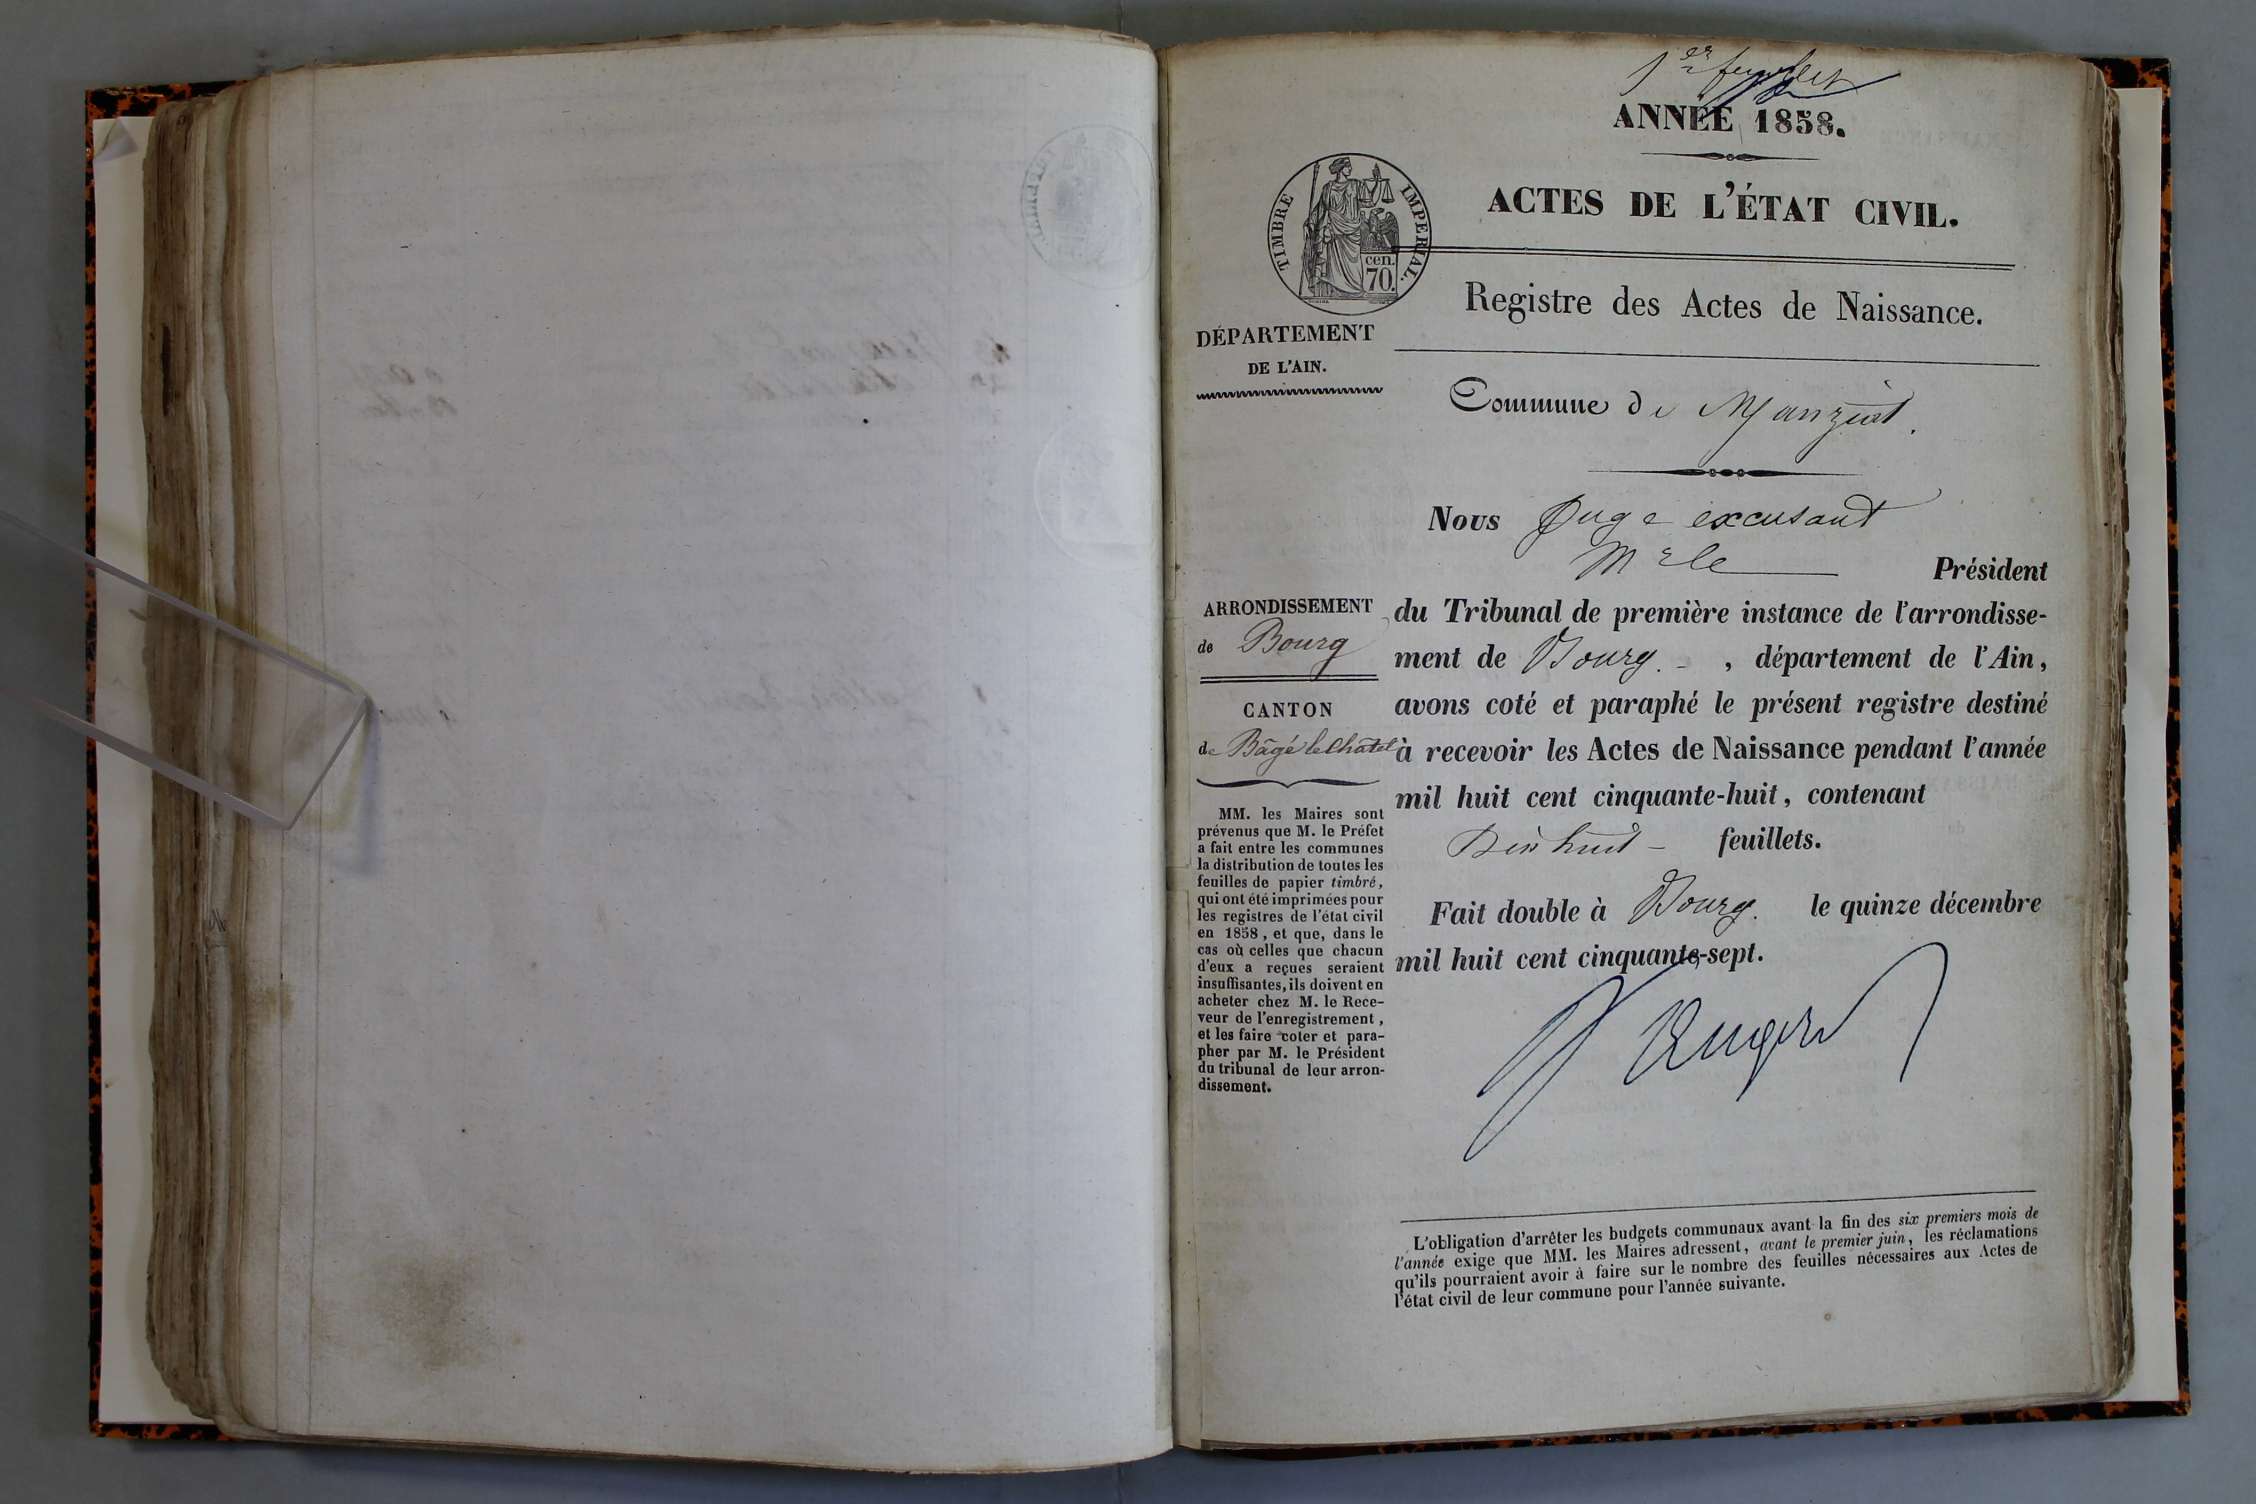 1er feuillet
ANNÉE 1858.
TIMBRE IMPERIAL.
cen.
70.
ACTES DE L'ÉTAT CIVIL.
Registre des Actes de Naissance.
DÉPARTEMENT
DE L'AIN.
Commune de Manziat.
Nous Juge excusant
Mr le Président
du Tribunal de première instance de l'arrondisse-
ment de Bourg - , département de l'Ain,
avons coté et paraphé le présent registre destiné
à recevoir les Actes de Naissance pendant l'année
mil huit cent cinquante-huit, contenant
Dix huit - feuillets.
Fait double à Bourg. le quinze décembre
mil huit cent cinquante-sept.
ARRONDISSEMENT
de Bourg
CANTON
de Bâgé le Châtel
MM. les Maires sont
prévenus que M. le Préfet
a fait entre les communes
la distribution de toutes les
feuilles de papier timbré,
qui ont été imprimées pour
les registres de l'état civil
en 1858, et que, dans le
cas où celles que chacun
d'eux a reçues seraient
insuffisantes, ils doivent en
acheter chez M. le Rece-
veur de l'enregistrement,
et les faire coter et para-
pher par M. le Président
du tribunal de leur arron-
dissement.
L'obligation d'arrêter les budgets communaux avant la fin des six premiers mois de
l'année exige que MM. les Maires adressent, avant le premier juin, les réclamations
qu'ils pourraient avoir à faire sur le nombre des feuilles nécessaires aux Actes de
l'état civil de leur commune pour l'année suivante.